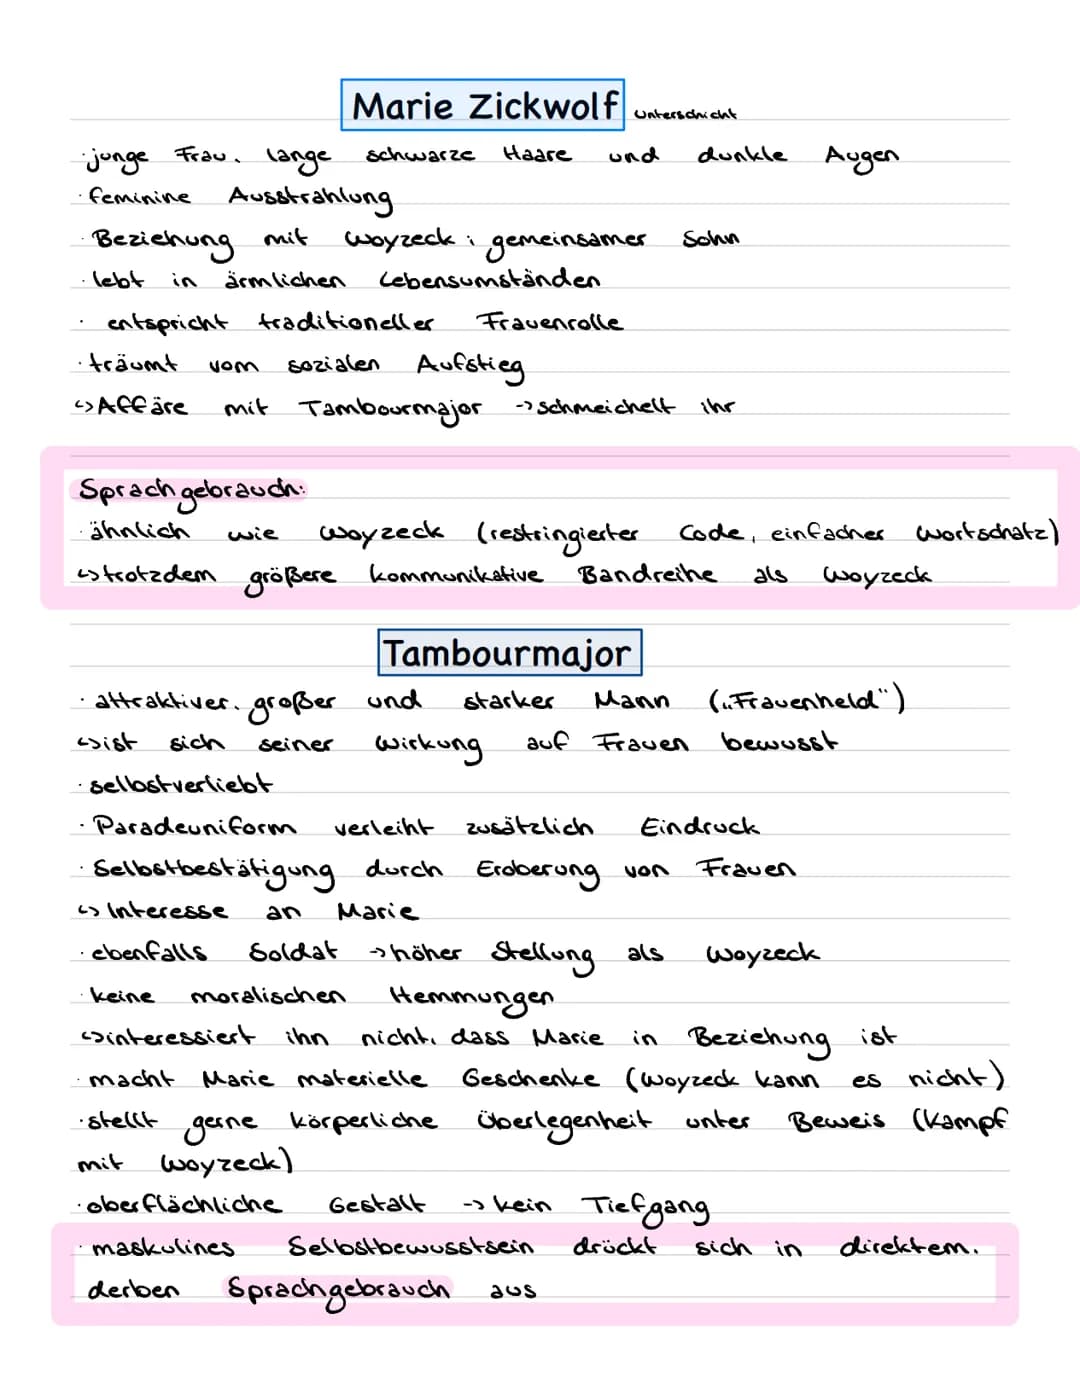 Marie Zickwolf Unterschicht
· junge Frau, lange schwarze Haare und dunkle Augen
· feminine Ausstrahlung
· Beziehung mit Woyzeck; gemeinsamer Sohn
· lebt in ärmlichen Lebensumständen
· entspricht traditioneller Frauenrolle
· träumt vom sozialen Aufstieg
↳ Affäre mit Tambourmajor -> schmeichelt ihr
Sprachgebrauch:
· ähnlich wie Woyzeck (restringierter Code, einfacher Wortschatz)
↳ trotzdem größere kommunikative Bandreihe als Woyzeck
Tambourmajor
· attraktiver, großer und starker Mann („Frauenheld“)
↳ ist sich seiner Wirkung auf Frauen bewusst
· selbstverliebt
· Paradeuniform verleiht zusätzlich Eindruck
· Selbstbestätigung durch Eroberung von Frauen
↳ Interesse an Marie
· ebenfalls Soldat -> höher Stellung als Woyzeck
· keine moralischen Hemmungen
↳ interessiert ihn nicht, dass Marie in Beziehung ist
· macht Marie materielle Geschenke (Woyzeck kann es nicht)
· stellt gerne körperliche Überlegenheit unter Beweis (Kampf
mit Woyzeck)
· oberflächliche Gestalt -> kein Tiefgang
· maskulines Selbstbewusstsein drückt sich in direktem,
derben Sprachgebrauch aus